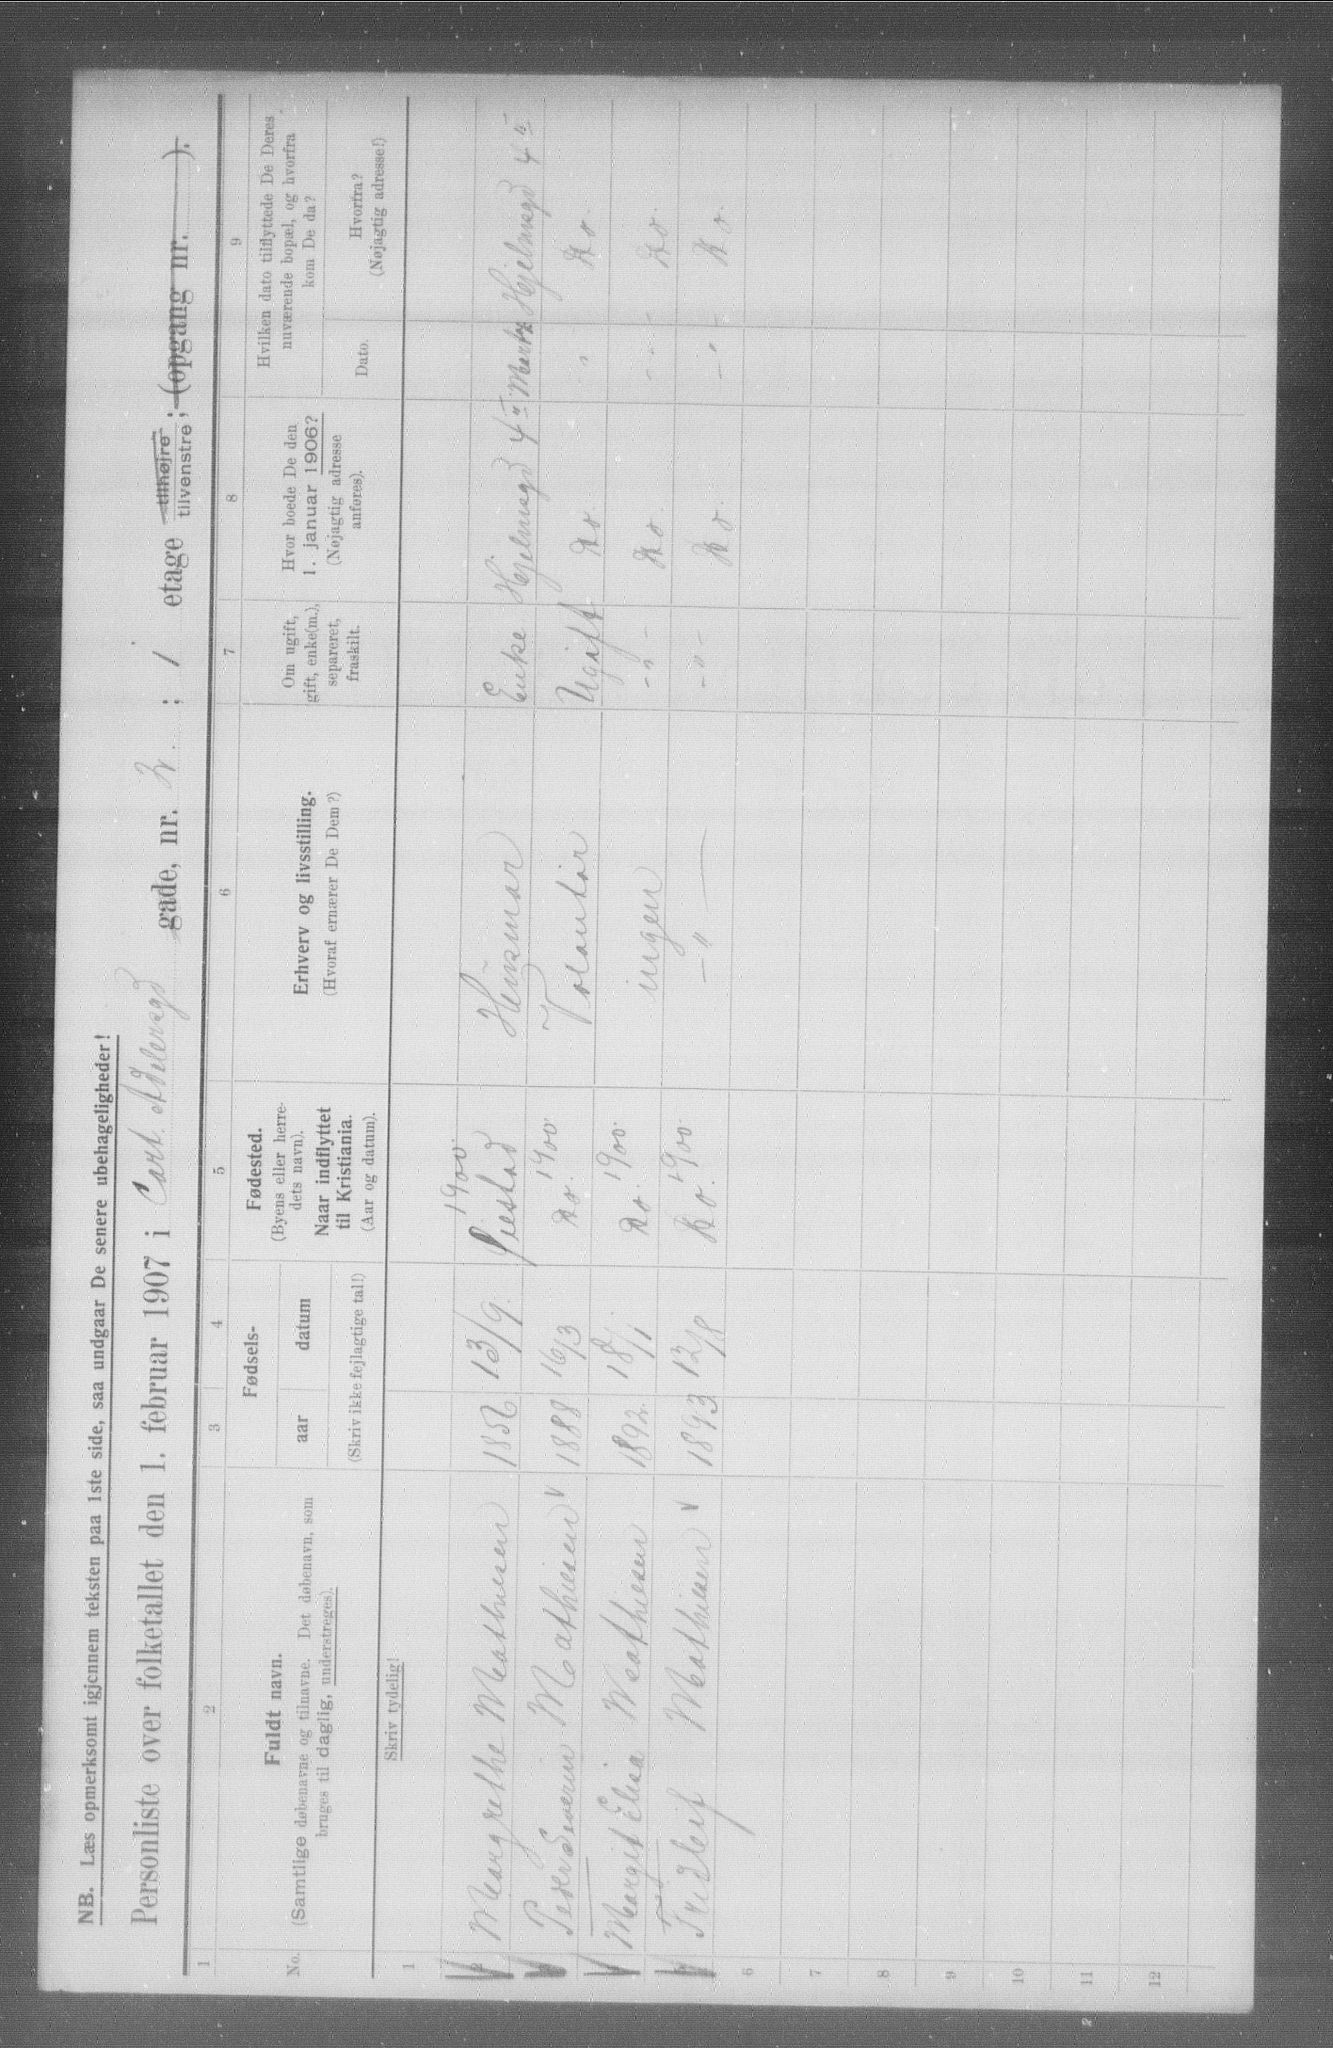 NB. Læs opmerksomt igjennem teksten paa 1ste side, saa undgaar De senere ubehageligheder!
Personliste over folketallet den 1. februar 1907 i Cort Adelersgd gade, nr. ; 1 etage tilhøjre tilvenstre; (opgang nr. ).
1 2 3 4 5 6 7 8 9
No.
Fuldt navn.
(Samtlige døbenavne og tilnavne. Det døbenavn, som
bruges til daglig, understreges).
Fødsels-
aar datum
(Skriv ikke fejlagtige tal!)
Fødested.
(Byens eller herre-
dets navn).
Naar indflyttet
til Kristiania.
(Aar og datum).
Erhverv og livsstilling.
(Hvoraf ernærer De Dem?)
Om ugift,
gift, enke(m.),
separeret,
fraskilt.
Hvor boede De den
1. januar 1906?
(Nøjagtig adresse
anføres).
Hvilken dato tilflyttede De Deres
nuværende bopæl, og hvorfra
kom De da?
Dato.
Hvorfra?
(Nøjagtig adresse!)
Skriv tydelig!
1
2 Margrethe Mathisen 1856 13/9. 1900. Husmor Enke Hjelmsgd 4 Marts Hjelmsgd 4
3 Mathiesen 1888 16/3 Do. 1900. Volontør Ugift Do. " Do.
4 Margit Elisa Mathiesen 1892 18/1 Do. 1900. ingen - " - Do. - " - Do.
5 Fridleif Mathisen 1893 12/8 Do. 1900. - " - - " - Do. - " - Do.
6
7
8
9
10
11
12